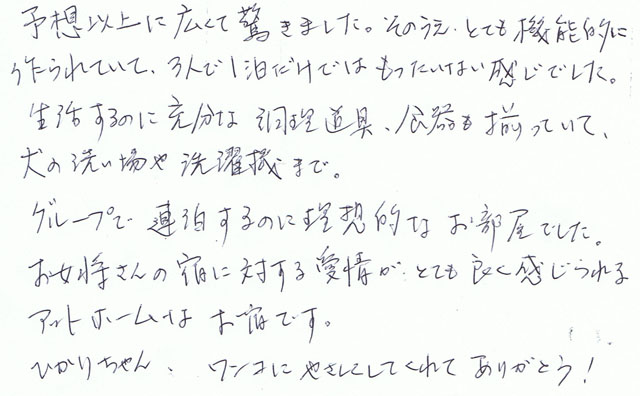 予想以上に広くて驚きました。そのうえ、とても機能的に
作られていて、3人で1泊だけではもったいない感じでした。
生活するのに充分な調理道具、食器も揃っていて、
犬の洗い場や洗濯機まで。
グループで連泊するのに理想的なお部屋でした。
お女将さんの宿に対する愛情がとても良く感じられる
アットホームなお宿です。
ひかりちゃん、ワンコにやさしくしてくれてありがとう!